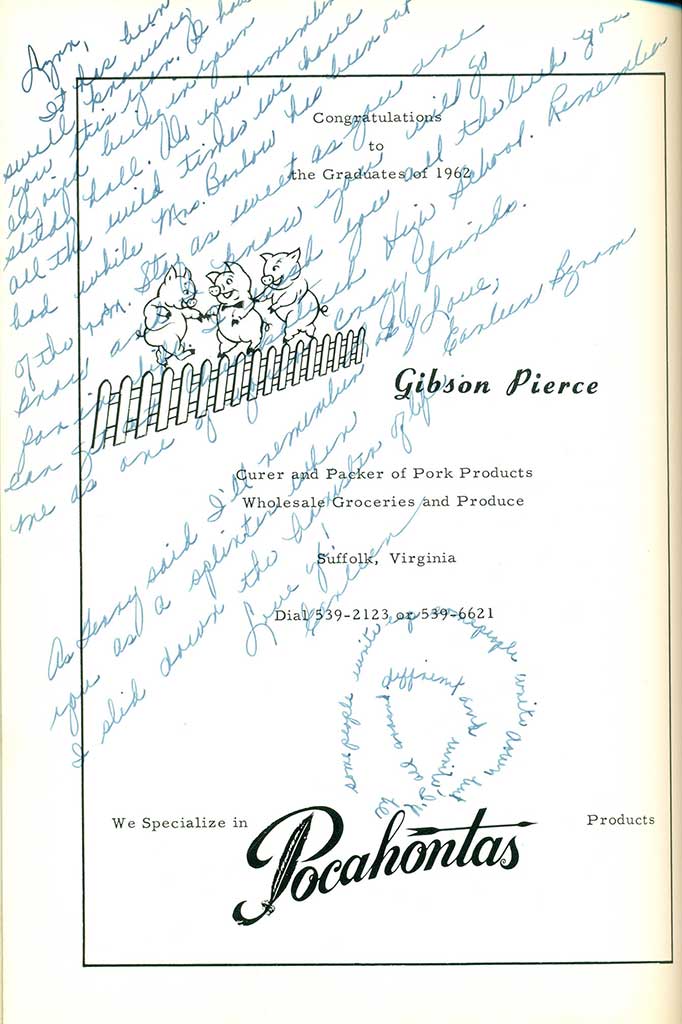 Lynn,
It has been
swell knowing
you this year. I have
enjoyed being in your
study hall. Do you remember
all the wild times we have
had while Mrs. Barlow has been out
of the room. Stay as sweet as you are
know you will go
far in wish you all the luck you
can get High School. Remember
me as one of your crazy friends.
Love,
Earleen Bynum
Congratulations
to
the Graduates of 1962
Gibson Pierce
Curer and Packer of Pork Products
Wholesale Groceries and Produce
Suffolk, Virginia
Dial 539-2123 or 539-6621
As said I'll remember
you as a splinter when
I slid down the of life
Love ya!
Earleen
some people write up people write down but I'll be different and write all around
We Specialize in Pocahontas Products